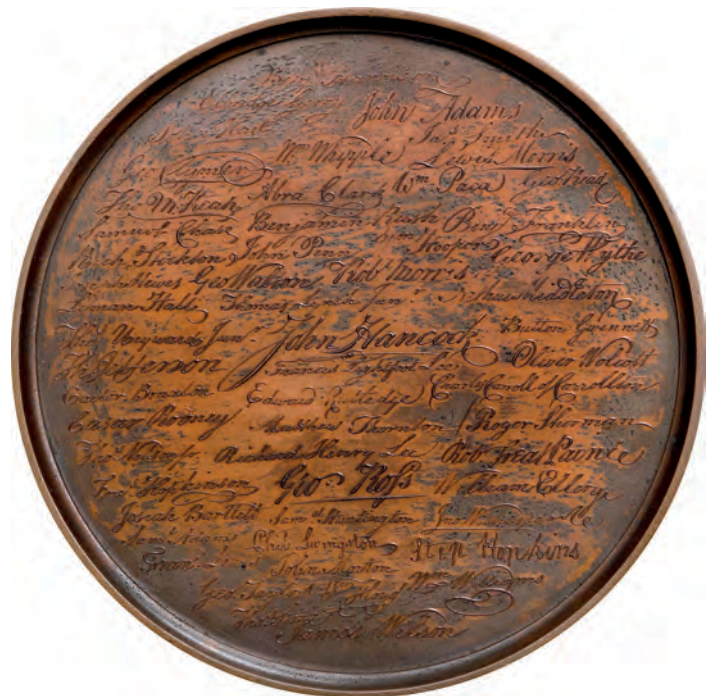 Harrison
John Adams
Hart Jas Smith
Geo Clymer Wm Whipple Lewis Morris
Tho M:Kean Abra Clark Wm Paca Geo Read
Samuel Chase Benjamin Rush Benj Franklin
Stockton John Penn Wm Hooper George Wythe
Hewes Geo Walton Robt Morris
Lyman Hall Thomas Lynch Junr Arthur Middleton
Thos Heyward Junr John Hancock Button Gwinnett
Th Jefferson Francis Lightfoot Lee Oliver Wolcott
Carter Braxton Edward Rutledge Charles Carroll of Carrollton
Cæsar Rodney Matthew Thornton Roger Sherman
Richard Henry Lee Robt Treat Paine
Fras Hopkinson Geo Ross William Ellery
Josiah Bartlett Saml Huntington
Saml Adams Phil. Livingston Step Hopkins
John Morton
Geo Taylor Wm Floyd Wm Williams
James Wilson